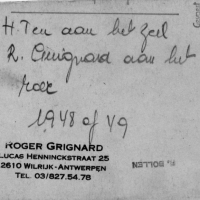 H. Ten aan het zeil
R. Grignard aan het
roer
1948 of 49
ROGER GRIGNARD
LUCAS HENNINCKSTRAAT 25
2610 WILRIJK-ANTWERPEN
TEL. 03/827.54.78